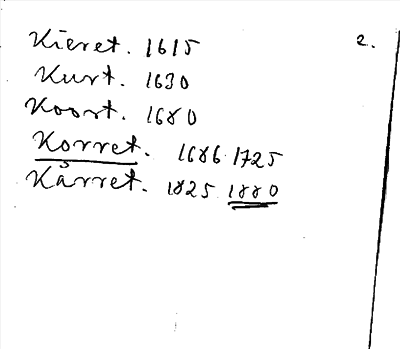 Kieret. 1615
2.
Kurt. 1630
Koort. 1680
Korret. 1686 1725
Kårret. 1825 1880